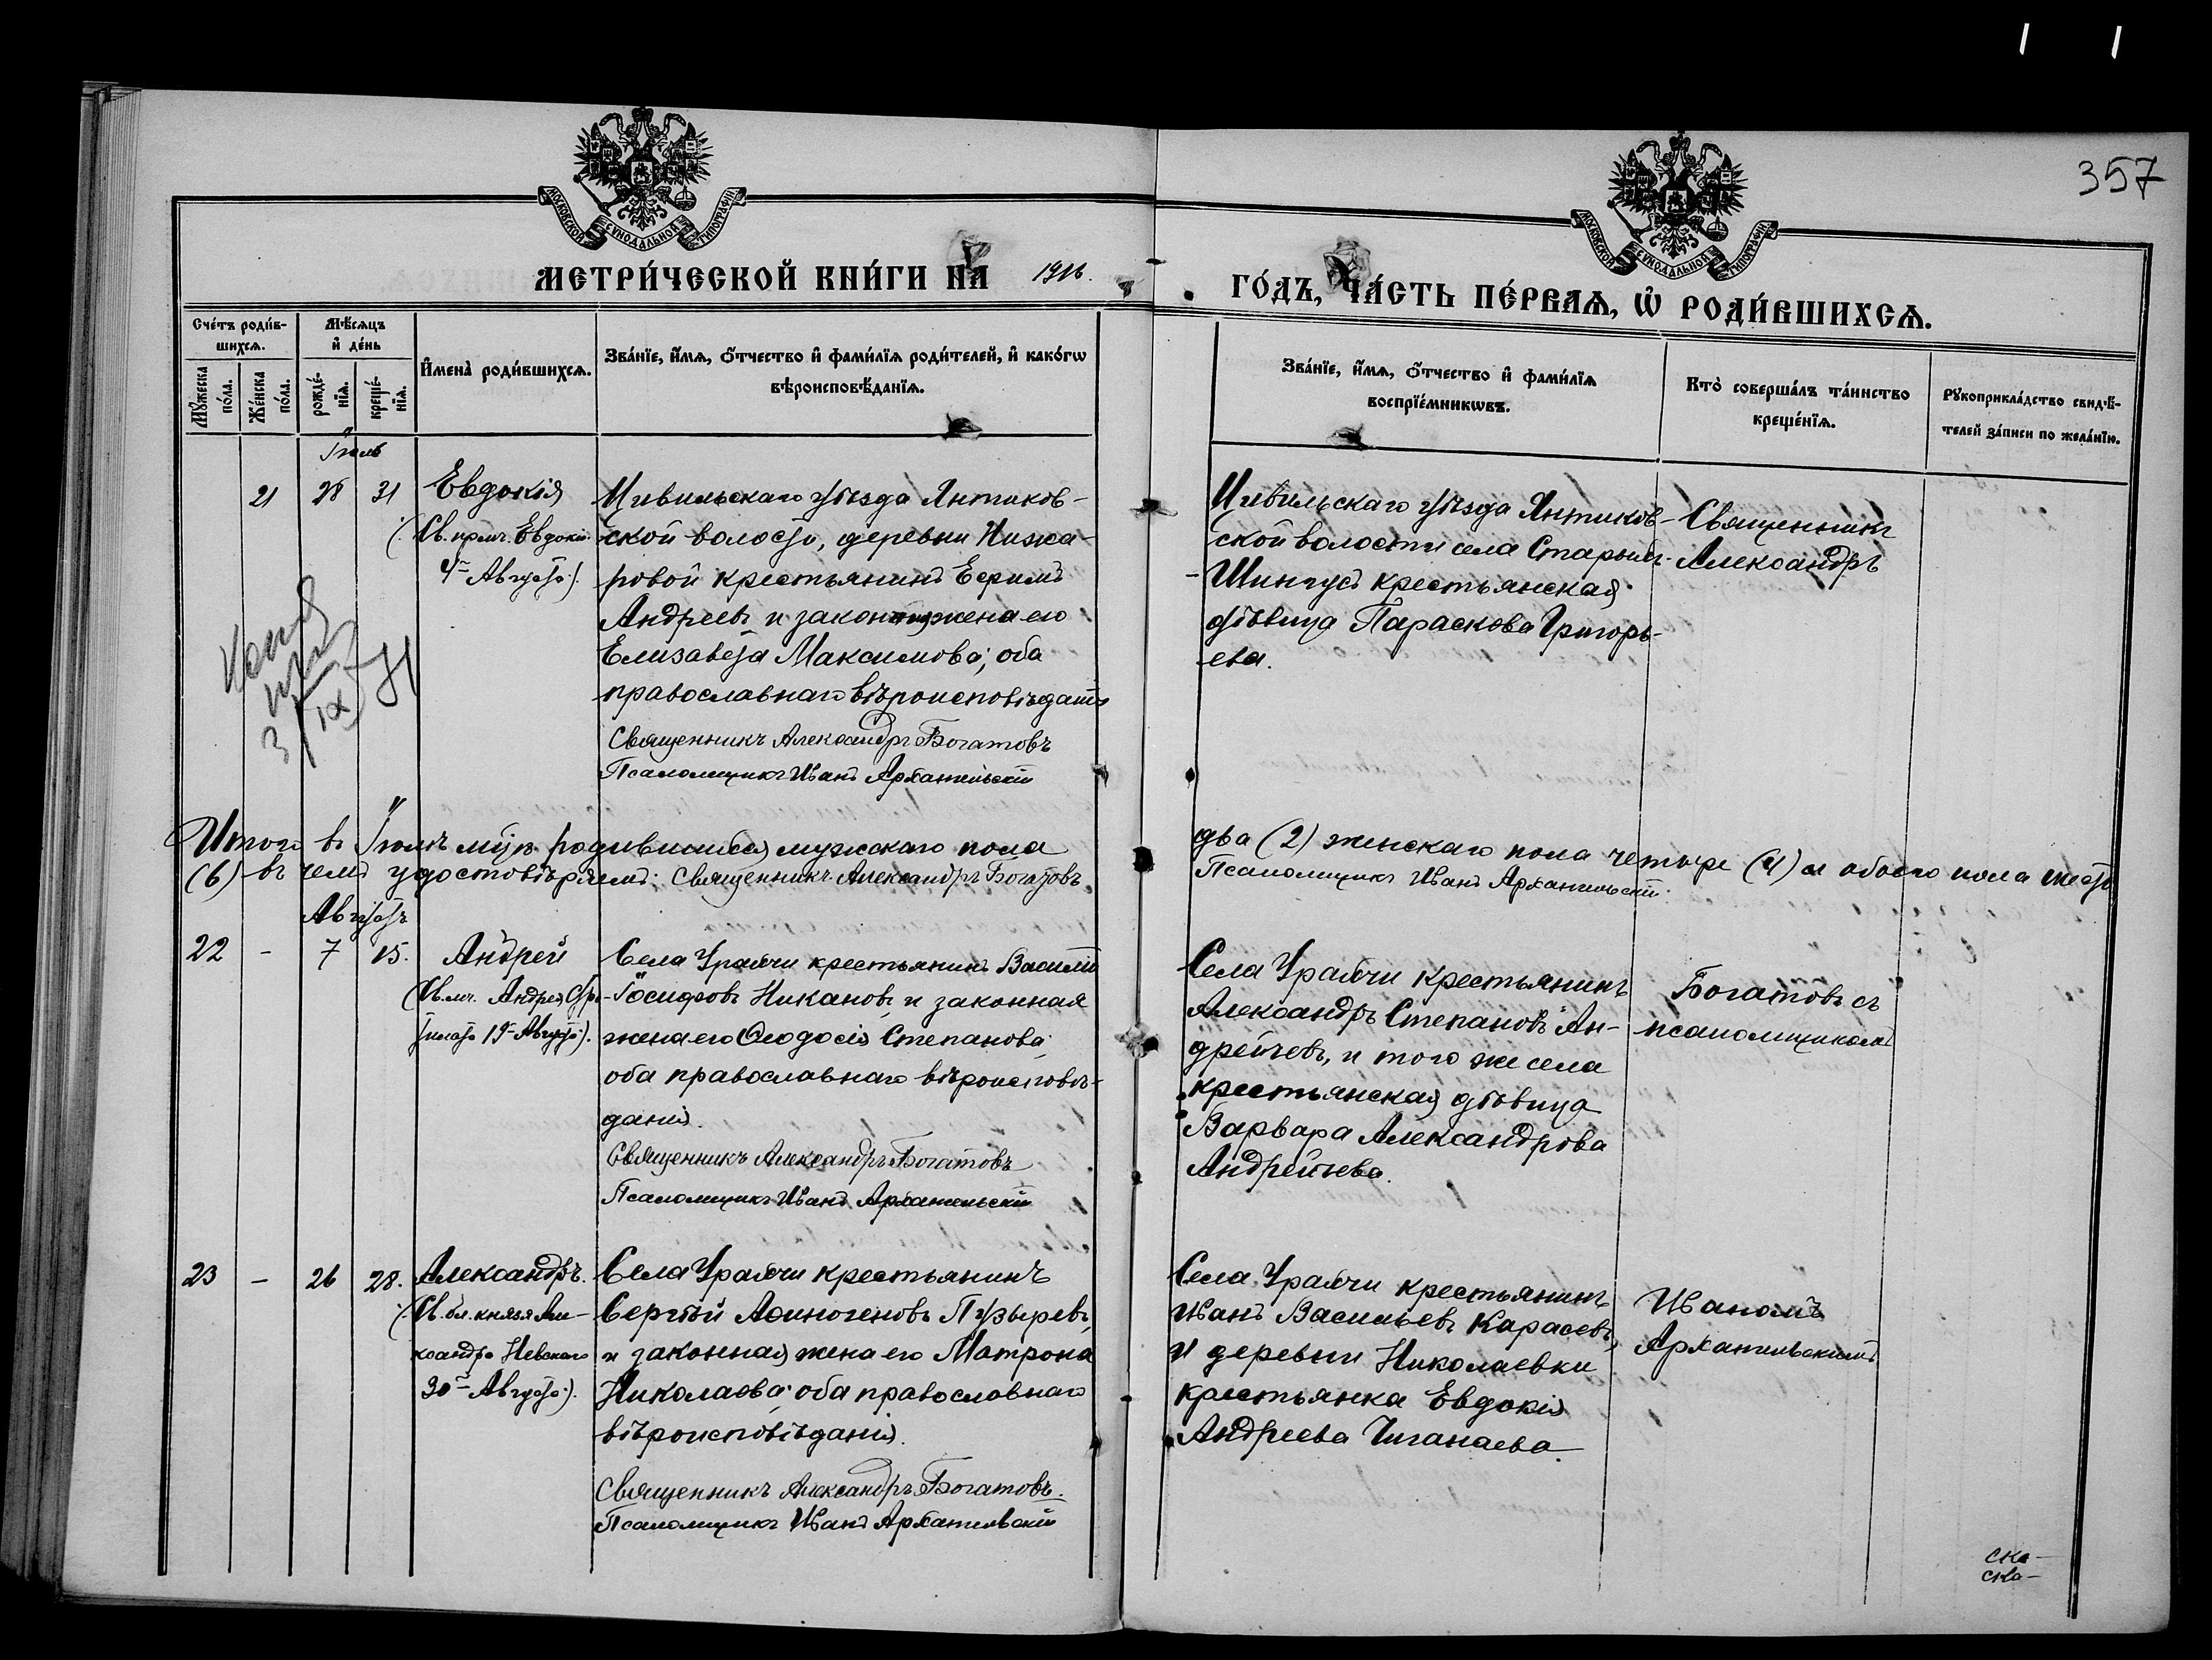 357
МОСКОВСКОЙ СѴНОДАЛЬНОЙ ТИПОГРАФІИ
МОСКОВСКОЙ СѴНОДАЛЬНОЙ ТИПОГРАФІИ
МЕТРИ́ЧЕСКОЙ КНИ́ГИ НА 1916.
ГО́ДЪ, ЧА́СТЬ ПЕ́РВАЯ, Ѡ҆ РОДИ́ВШИХСЯ.
Сче́тъ роди́в-
шихся.
Мѣ́сяцъ
и҆ де́нь
Му́жеска
по́ла.
Же́нска
по́ла.
рожде́-
нїя.
креще́-
нїя.
И҆мена̀ роди́вшихся.
Зва́нїе, и҆́мя, ѻ҆́тчество и҆ фами́лїя роди́телей, и҆ како́гѡ
вѣроисповѣ́данїя.
Зва́нїе, и҆́мя, ѻ҆́тчество и҆ фами́лїя
воспрїе́мникѡвъ.
Кто̀ соверша́лъ та́инство
креще́нїя.
Рꙋкоприкла́дство свидѣ́-
телей за́писи по жела́нїю.
Іюль
21 28 31 Евдокія
(Св. прмч. Евдокіи
4го Августа).
Цивильскаго уѣзда Янтиков-
ской волости, деревни
ровой крестьянинъ Ефимъ
Андреевъ и законная жена его
Елизавета Максимова; оба
православнаго вѣроисповѣданія
Священникъ Александръ Богатовъ
Псаломщикъ Иванъ Архангельскій
Цивильскаго уѣзда Янтиков-
ской волости села Старыхъ-
Шингусъ крестьянская
дѣвица Параскова Григорь-
ева.
Священникъ
Александръ
Копія
3/IX
Итого въ Іюлѣ мцѣ родившихся мужскаго пола
два (2) женскаго пола четыре (4) а обоего пола шесть
(6) въ чемъ удостовѣряемъ: Священникъ Александръ Богатовъ
Псаломщикъ Иванъ Архангельскій.
Августъ
22 - 7 15. Андрей
(Св. мч. Андрея Стра-
тилата 19го Августа).
Села Урайчи крестьянинъ Василій
Іосифовъ Никановъ, и законная
жена его Ѳеодосія Степанова;
оба православнаго вѣроисповѣ-
данія.
Священникъ Александръ Богатовъ
Псаломщикъ Иванъ Архангельскій
Села Урайчи крестьянинъ
Александръ Степановъ Ан-
дрейчевъ, и того же села
крестьянская дѣвица
Варвара Александрова
Андрейчева.
Богатовъ съ
псаломщикомъ
23 - 26 28. Александръ.
(Св. бл. князя Але-
ксандра Невскаго
30го Августа).
Села Урайчи крестьянинъ
Сергѣй Аѳиногеновъ Пузыревъ,
и законная жена его Матрона
Николаева; оба православнаго
вѣроисповѣданія.
Священникъ Александръ Богатовъ.
Псаломщикъ Иванъ Архангельскій
Села Урайчи крестьянинъ
Иванъ Васильевъ Карасевъ,
и деревни Николаевки
крестьянка Евдокія
Андреева Чиганаева.
Иваномъ
Архангельскимъ